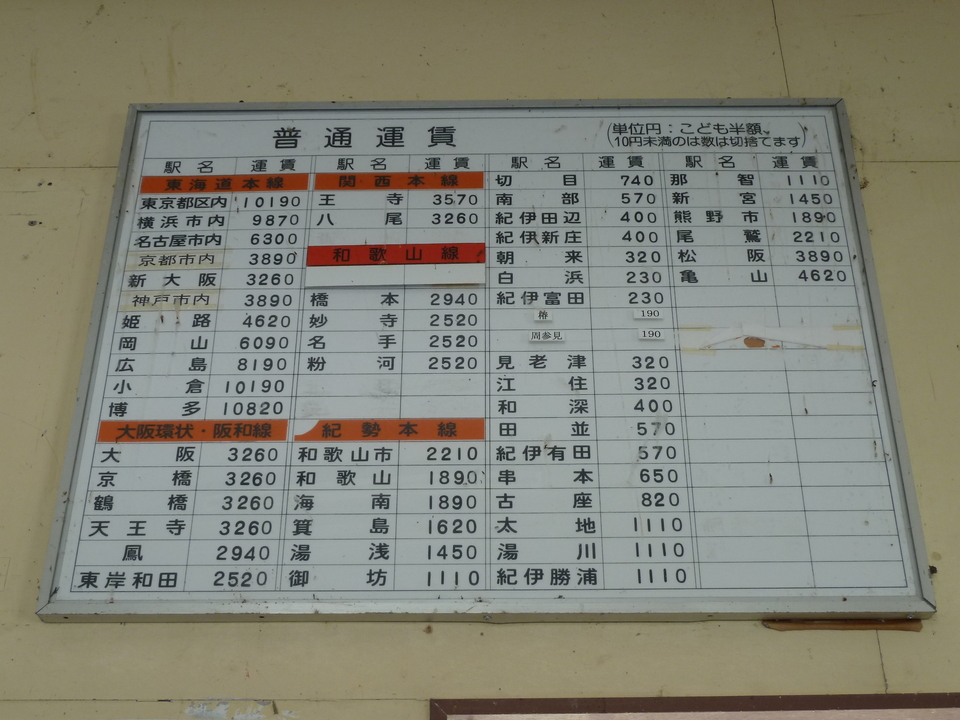 普通運賃
(単位円：こども半額、
10円未満のは数は切捨てます)
駅名 運賃
東海道本線
東京都区内 10190
横浜市内 9870
名古屋市内 6300
京都市内 3890
新大阪 3260
神戸市内 3890
姫路 4620
岡山 6090
広島 8190
小倉 10190
博多 10820
大阪環状・阪和線
大阪 3260
京橋 3260
鶴橋 3260
天王寺 3260
鳳 2940
東岸和田 2520
駅名 運賃
関西本線
王寺 3570
八尾 3260
和歌山線
橋本 2940
妙寺 2520
名手 2520
粉河 2520
紀勢本線
和歌山市 2210
和歌山 1890
海南 1890
箕島 1620
湯浅 1450
御坊 1110
駅名 運賃
切目 740
南部 570
紀伊田辺 400
紀伊新庄 400
朝来 320
白浜 230
紀伊富田 230
椿 190
周参見 190
見老津 320
江住 320
和深 400
田並 570
紀伊有田 570
串本 650
古座 820
太地 1110
湯川 1110
紀伊勝浦 1110
駅名 運賃
那智 1110
新宮 1450
熊野市 1890
尾鷲 2210
松阪 3890
亀山 4620